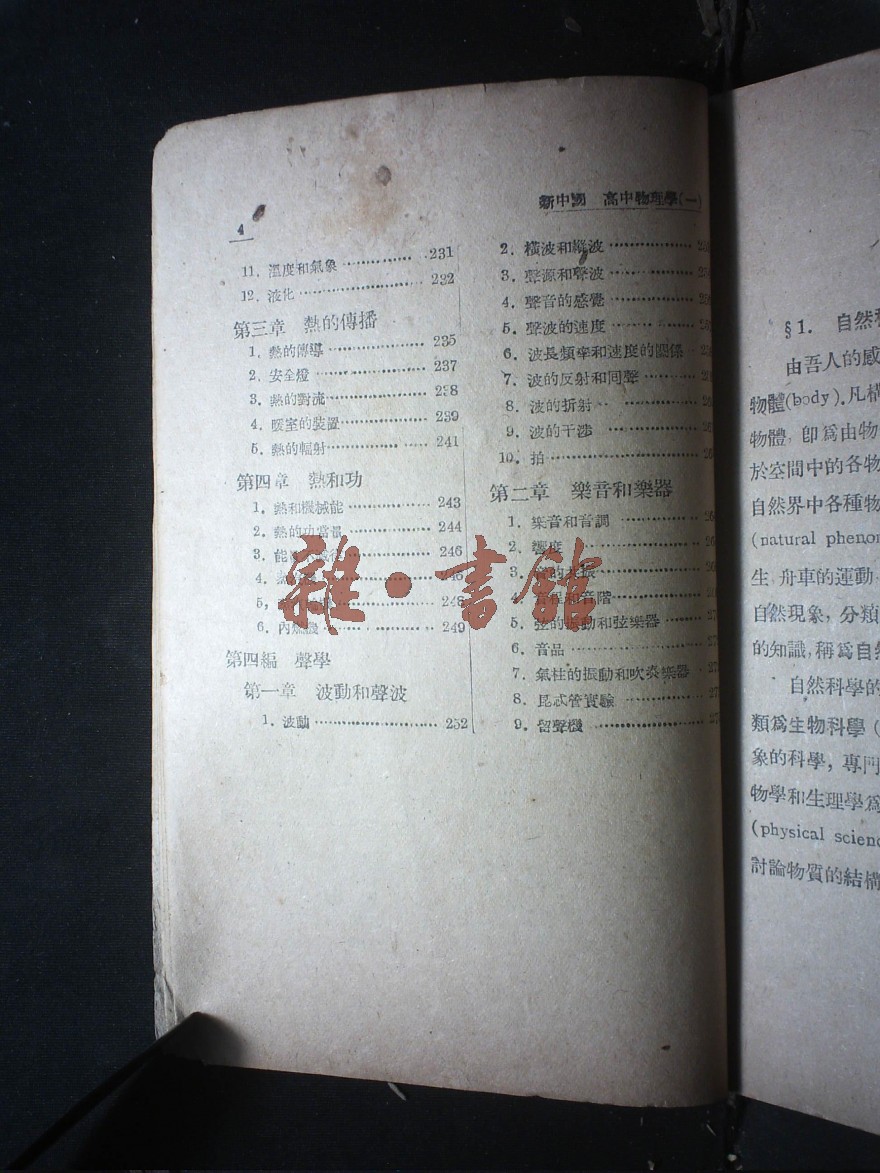 4
新中國 高中物理學(一)
11. 溫度和氣象 231
12. 液化 232
第三章 熱的傳播
1. 熱的傳導 235
2. 安全燈 237
3. 熱的對流 238
4. 暖室的裝置 239
5. 熱的輻射 241
第四章 熱和功
1. 熱和機械能 243
2. 熱的功當量 244
3. 能 246
4.
5. 248
6. 內燃機 249
第四編 聲學
第一章 波動和聲波
1. 波動 252
2. 橫波和縱波
3. 聲源和聲波
4. 聲音的感覺
5. 聲波的速度
6. 波長頻率和速度的關係
7. 波的反射和回聲
8. 波的折射
9. 波的干涉
10. 拍
第二章 樂音和樂器
1. 樂音和音調
2. 響度
3. 振
4. 和音階
5. 弦的振動和弦樂器
6. 音品
7. 氣柱的振動和吹奏樂器
8. 昆忒管實驗
9. 留聲機
雜·書館
§1. 自然
由吾人的感
物體(body).凡構
物體,卽爲由物
於空間中的各物
自然界中各種物
(natural phenom
生,舟車的運動
自然現象,分類
的知識,稱爲自然
自然科學的
類爲生物科學(
象的科學,專門
物學和生理學爲
(physical scienc
討論物質的結構